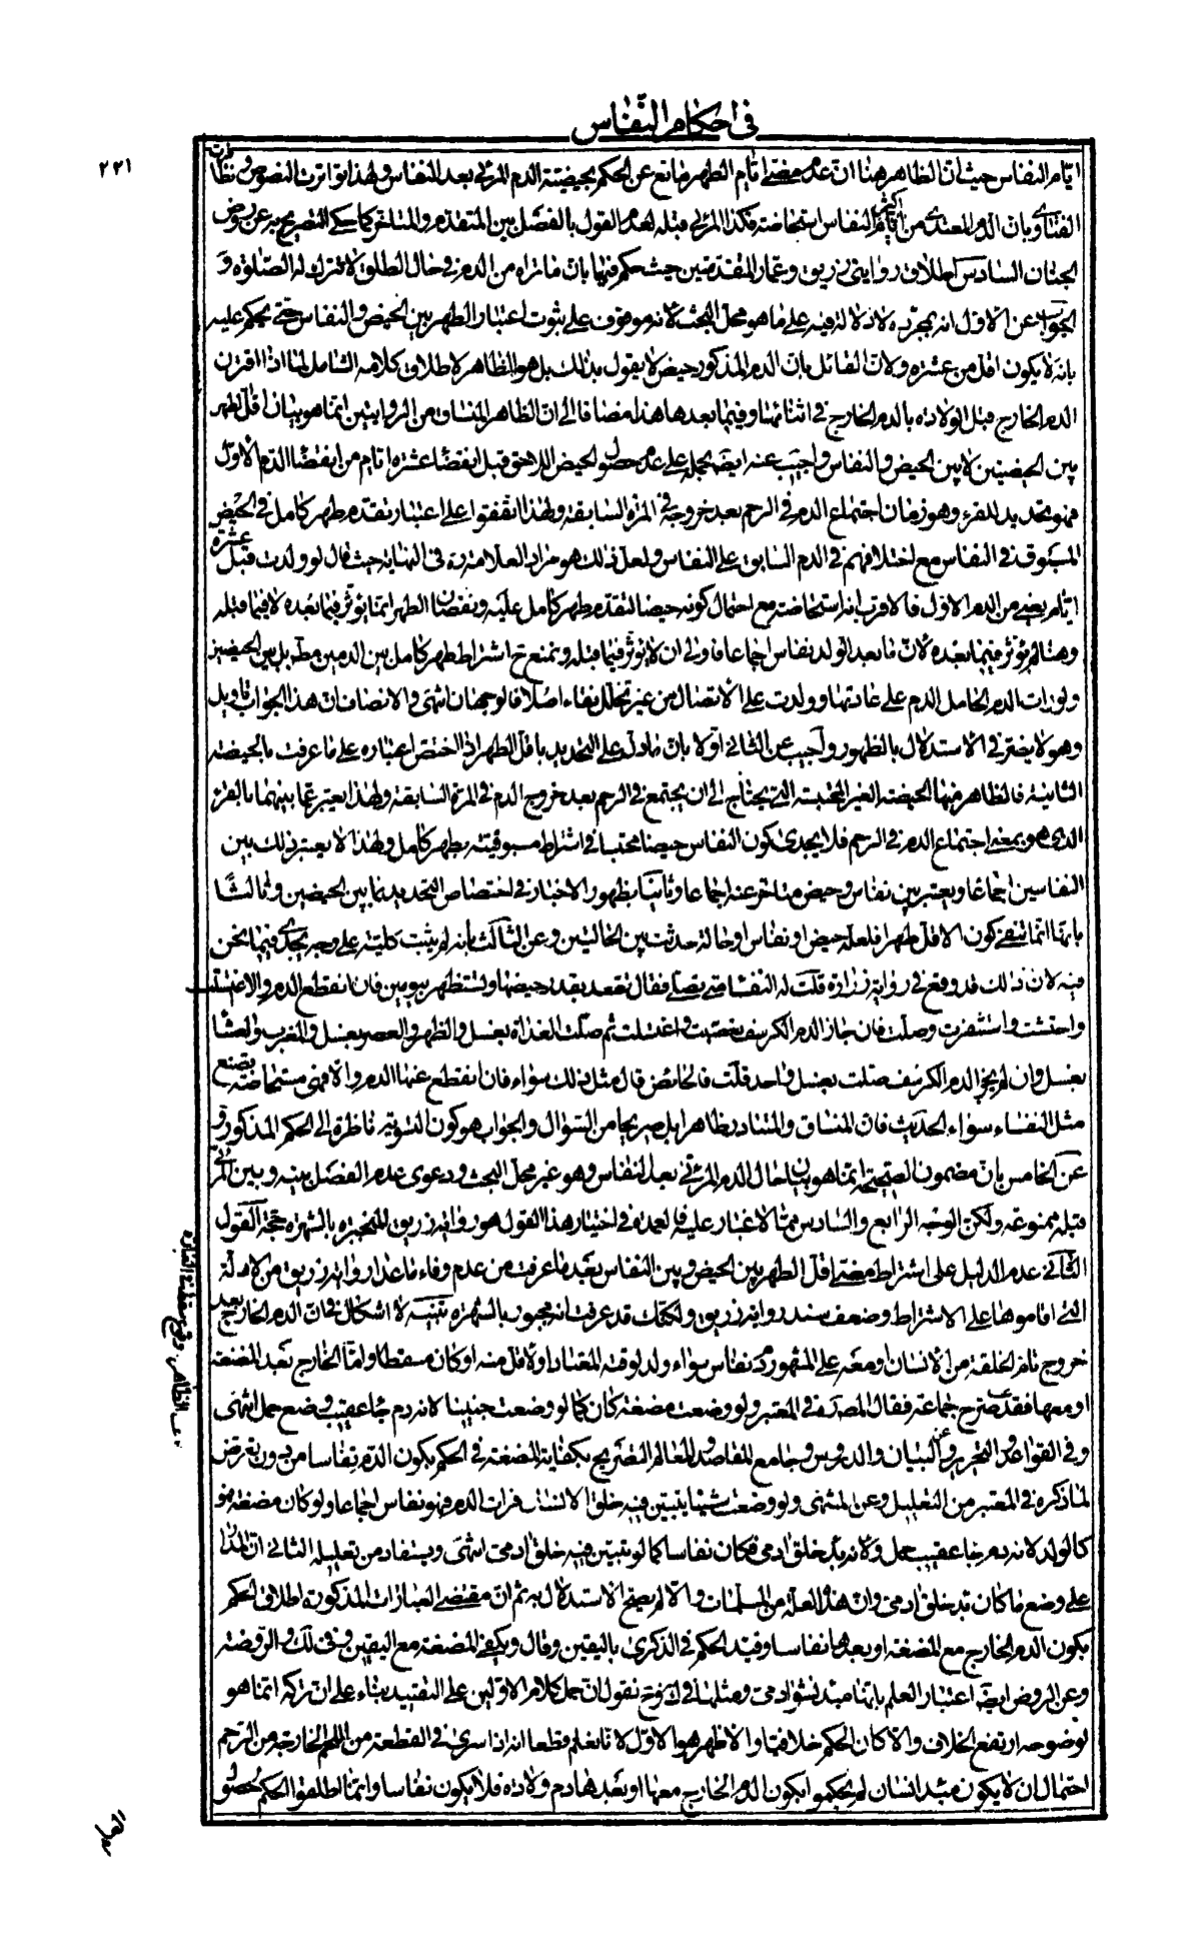 في احكام النّفاس
٢٢١
ايّام النفاس حيث انّ الظاهر هنا انّ عدم مضىّ ايّام الطهر مانع عن الحكم بحيضيّته الدم المرئى بعد النفاس ولهذا تواترت النصوص وتظافرت
الفتاوى بان الدم المعتدى من اكثر ايّام النفاس استحاضة فكذا المرئى قبله لعدم القول بالفصل بين المتقدم والمتاخر كما حكى التصريح به عن روض
الجنان السادس اطلاق روايتى زريق وعمار المتقدمتين حيث حكم فيهما بان ما تراه من الدم في حال الطلق لا تترك له الصّلوة و
الجواب عن الاوّل انه بمجرده لا دلالة فيه على ما هو محل البحث لانه موقوف على ثبوت اعتبار الطهر بين الحيض والنفاس حتى يحكم عليه
بانه لا يكون اقل من عشرة ولانّ القائل بان الدم المذكور حيض لا يقول بذلك بل هو الظاهر لاطلاق كلامه الشامل لما اذا اقترن
الدم الخارج قبل الولادة بالدم الخارج في اثنائها وفيما بعدها هذا مضافا الى ان الظاهر المنساق من الروايتين انما هو بيان اقل طهر
بين الحيضتين لا بين الحيض والنفاس واجيب عنه ايضا بحمله على عدم حصول الحيض اللاحق قبل انقضاء عشرة ايّام من انقضاء الدّم الاوّل
فهو تحديد للقرء وهو زمان اجتماع الدم في الرحم بعد خروجه في المرّة السابقة ولهذا اتفقوا على اعتبار تقدّم طهر كامل في الحيض
المسبوق في النفاس مع اختلافهم في الدم السابق على النفاس ولعل ذلك هو مراد العلامة ره في النهاية حيث قال لو ولدت قبل عشرة
ايّام يعنى من الدم الاول فالاقرب انه استحاضة مع احتمال كونه حيضا لتقدم طهر كامل عليه ونقصان الطهر انما يؤثر فيما بعده لا فيما قبله
وهنا لم يؤثر فيما بعده لانّ ما بعد الولد نفاس اجماعا فاولى ان لا يؤثر فيما قبله ونمنع ح اشتراط طهر كامل بين الدمين مطلقا بل بين الحيضتين
ولو رات الحامل الدم على عادتها وولدت على الاتصال من غير تخلل نقاء اصلا فالوجهان انتهى والانصاف ان هذا الجواب تاويل
وهو لا يضر في الاستدلال بالظهور واجيب عن الثانى اولا بان ما دل على التحديد باقل الطهر اذا اختص اعتباره على ما عرفت بالحيضة
الثانية فالظاهر منها الحيضة الغير المحتبسة التى يحتاج الى ان يجتمع في الرحم بعد خروج الدم في المرة السابقة ولهذا يعتبر عما بينهما بالقرء
الذى هو بمعنى اجتماع الدم في الرحم فلا يجدى كون النفاس حيضا محتبسا في اشتراط مسبوقيته بطهر كامل ولهذا لا يعتبر ذلك بين
النفاسين اجماعا ويعتبر بين نفاس وحيض متاخر عنه اجماعا وثانيا بظهور الاخبار في اختصاص التحديد بما بين الحيضين وثالثا
بانها انما تنفى كون الاقل طهرا فلعله حيض او نفاس او حالة حدثت بين الحالتين وعن الثالث بانه لم يثبت كلية على وجه يجدى فيما نحن
فيه لان ذلك قد وقع في رواية زرارة قلت له النفساء متى تصلّى فقال تقعد بقدر حيضها وتستظهر بيومين فان انقطع الدم والا اغتسلت
واحتشت واستثفرت وصلّت فان جاز الدم الكرسف تعصبت واغتسلت ثم صلّت الغداة بغسل والظهر والعصر بغسل والمغرب والعشاء
بغسل وان لم يجز الدم الكرسف صلت بغسل واحد قلت فالحائض قال مثل ذلك سواء فان انقطع عنها الدم والا فهى مستحاضة تصنع
مثل النفساء سواء الحديث فان المنساق والمتبادر ظاهرا بل صريحا من السؤال والجواب هو كون التسوية ناظرة الى الحكم المذكور و
عن الخامس بان مضمون الصحيحة انما هو بيان حال الدم المرئى بعد النفاس وهو غير محل البحث ودعوى عدم الفصل بينه وبين المرئى
قبله ممنوعة ولكن الوجه الرابع والسادس ممّا لا غبار عليه فالعمدة في اختيار هذا القول هو رواية زريق المنجبرة بالشهرة حجة القول
الثانى عدم الدليل على اشتراط مضى اقل الطهر بين الحيض وبين النفاس بعد ما عرفت من عدم وفاء ما عدا رواية زريق من الادلة
التى اقاموها على الاشتراط وضعف سند رواية زريق ولكنك قد عرفت انه مجبور بالشهرة تنبيه لا اشكال في ان الدم الخارج بعد
خروج تام الخلقة من الانسان او معه على المشهور دم نفاس سواء ولد لوقته المعتاد او لاقل منه او كان مسقطا وامّا الخارج بعد المضغة
او معها فقد صرّح جماعة فقال المصنف في المعتبر ولو وضعت مضغة كان كما لو وضعت جنينا لانه دم جاء عقيب وضع حمل انتهى
وفي القواعد والتحرير وعن البيان والدروس وجامع المقاصد والمعالم التصريح بكفاية المضغة في الحكم بكون الدّم نفاسا من دون تعرض
لما ذكره في المعتبر من التعليل وعن المنتهى ولو وضعت شيئا يتبين فيه خلق الانسان فرات الدم فهو نفاس اجماعا ولو كان مضغة فهو
كالولد لانه دم جاء عقيب حمل ولانه بدء خلق ادمى فكان نفاسا كما لو تبين فيه خلق ادمى انتهى ويستفاد من تعليله الثانى ان المدار
على وضع ما كان بدء خلق ادمى وان هذه العلة من المسلمات والا لم يصح الاستدلال به ثم ان مقتضى العبارات المذكورة اطلاق الحكم
بكون الدم الخارج مع المضغة او بعدها نفاسا وقيد الحكم في الذكرى باليقين وقال ويكفى المضغة مع اليقين وفي لك والروضة
وعن الروض ايضا اعتبار العلم بانها مبدء نشو ادمى ومثلها في لا وح نقول ان حمل كلام الاوّلين على التقييد بناء على ان تركه انما هو
لوضوحه ارتفع الخلاف والا كان الحكم خلافيا والاظهر هو الاوّل لانا نعلم قطعا انه اذا سرى في القطعة من اللحم الخارجة من الرحم
احتمال ان لا يكون مبدء انسان لم يحكموا بكون الدم الخارج معها او بعدها دم ولادة فلا يكون نفاسا وانما اطلقوا الحكم لحصول